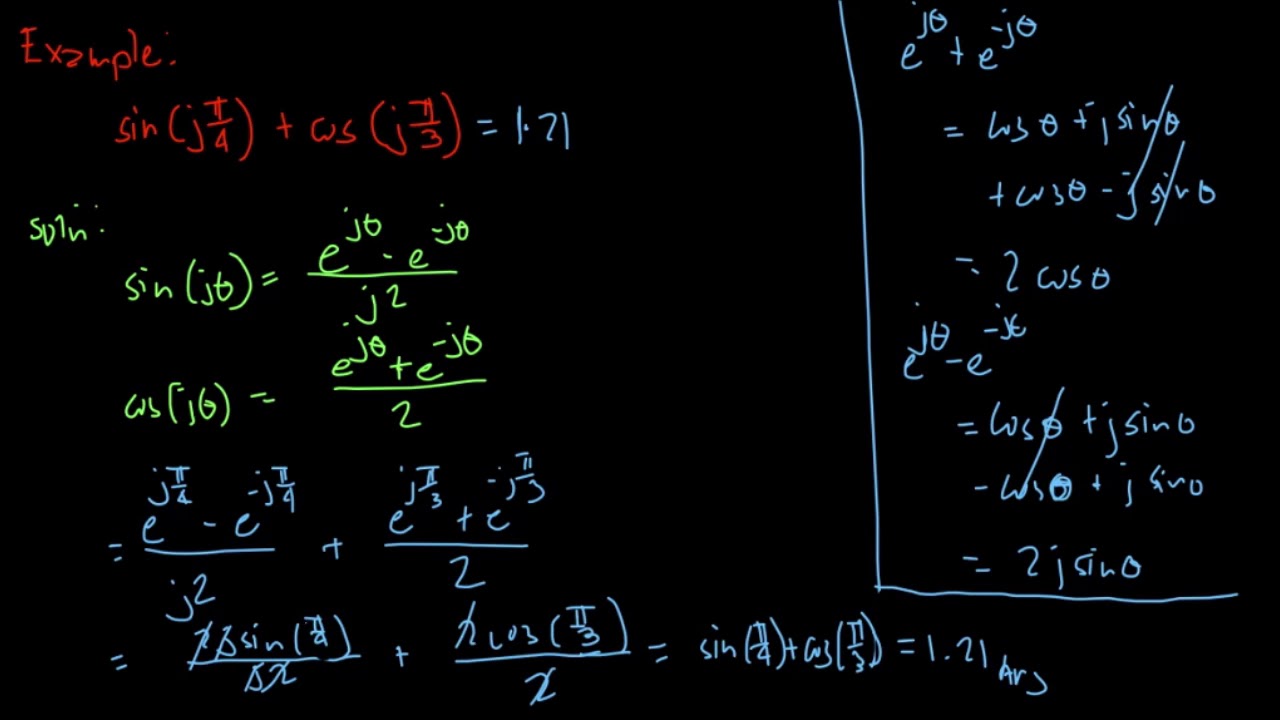 Example:
sin(jπ/4) + cos(jπ/3) = 1.21
soln:
sin(jθ) = (e^jθ - e^-jθ)/j2
cos(jθ) = (e^jθ + e^-jθ)/2
= (e^jπ/4 - e^-jπ/4)/j2 + (e^jπ/3 + e^-jπ/3)/2
= 2j sin(π/4)/j2 + 2cos(π/3)/2 = sin(π/4) + cos(π/3) = 1.21 Ans
e^jθ + e^-jθ
= cos θ + j sin θ
+ cos θ - j sin θ
= 2 cos θ
e^jθ - e^-jθ
= cos θ + j sin θ
- cos θ + j sin θ
= 2j sin θ